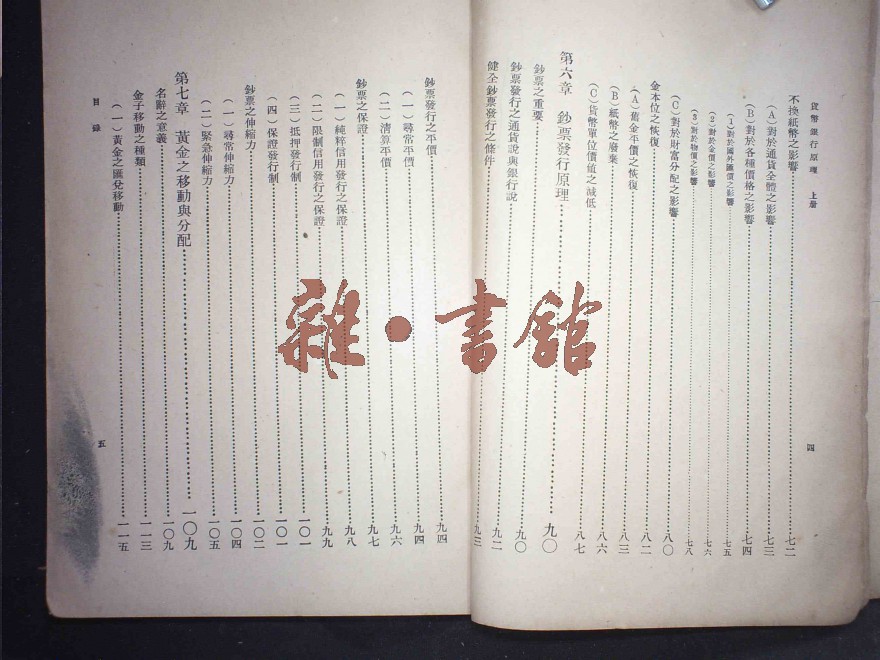 貨幣銀行原理　上册
不換紙幣之影響……七二
（A）對於通貨全體之影響……七三
（B）對於各種價格之影響……七四
（1）對於國外匯價之影響……七五
（2）對於金價之影響……七六
（3）對於物價之影響……七八
（C）對於財富分配之影響……八〇
金本位之恢復……八二
（A）舊金平價之恢復……八三
（B）紙幣之廢棄……八六
（C）貨幣單位價値之減低……八七
四
第六章　鈔票發行原理……九〇
鈔票之重要……九〇
鈔票發行之通貨說與銀行說……九二
健全鈔票發行之條件……九三
鈔票發行之平價……九四
（一）尋常平價……九四
（二）淸算平價……九六
鈔票之保證……九七
（一）純粹信用發行之保證……九八
（二）限制信用發行之保證……九九
（三）抵押發行制……一〇一
（四）保證發行制……一〇一
鈔票之伸縮力……一〇二
（一）尋常伸縮力……一〇四
（二）緊急伸縮力……一〇五
第七章　黃金之移動與分配……一〇九
名辭之意義……一〇九
金子移動之種類……一一三
（一）黃金之匯兌移動……一一五
目錄
五
雜·書館